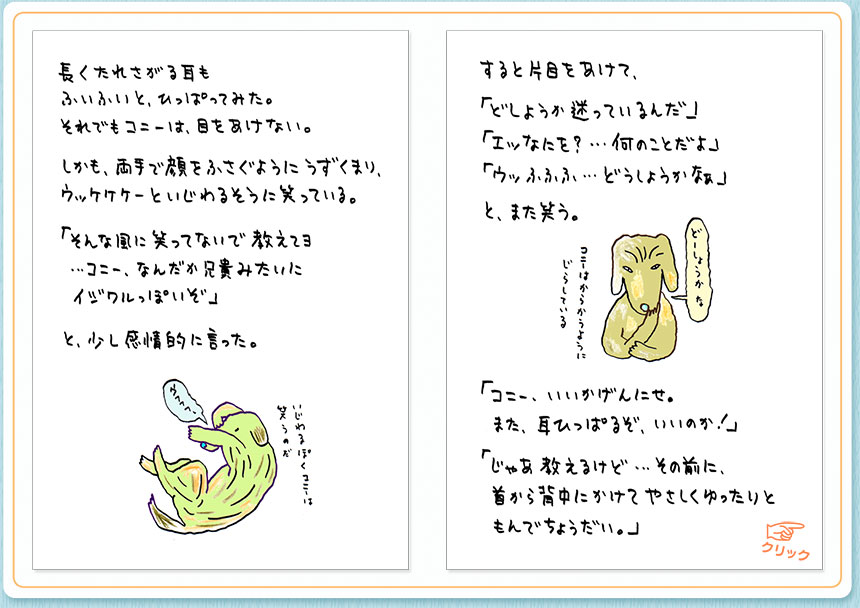 長くたれさがる耳も
ふいふいと、ひっぱってみた。
それでもコニーは、目をあけない。
しかも、両手で顔をふさぐようにうずくまり、
ウッケケケーといじわるそうに笑っている。
「そんな風に笑ってないで教えてヨ
…コニー、なんだか兄貴みたいに
イジワルっぽいぞ」
と、少し感情的に言った。
いじわるぽくコニーは
笑うのだ
すると片目をあけて、
「どしようか迷っているんだ」
「エッなにを？…何のことだよ」
「ウッふふふ…どうしようかなぁ」
と、また笑う。
どーしようかな
コニーはからかうように
じらしている
「コニー、いいかげんにせ。
また、耳ひっぱるぞ、いいのか！」
「じゃあ教えるけど…その前に、
首から背中にかけてやさしくゆったりと
もんでちょうだい。」
クリック